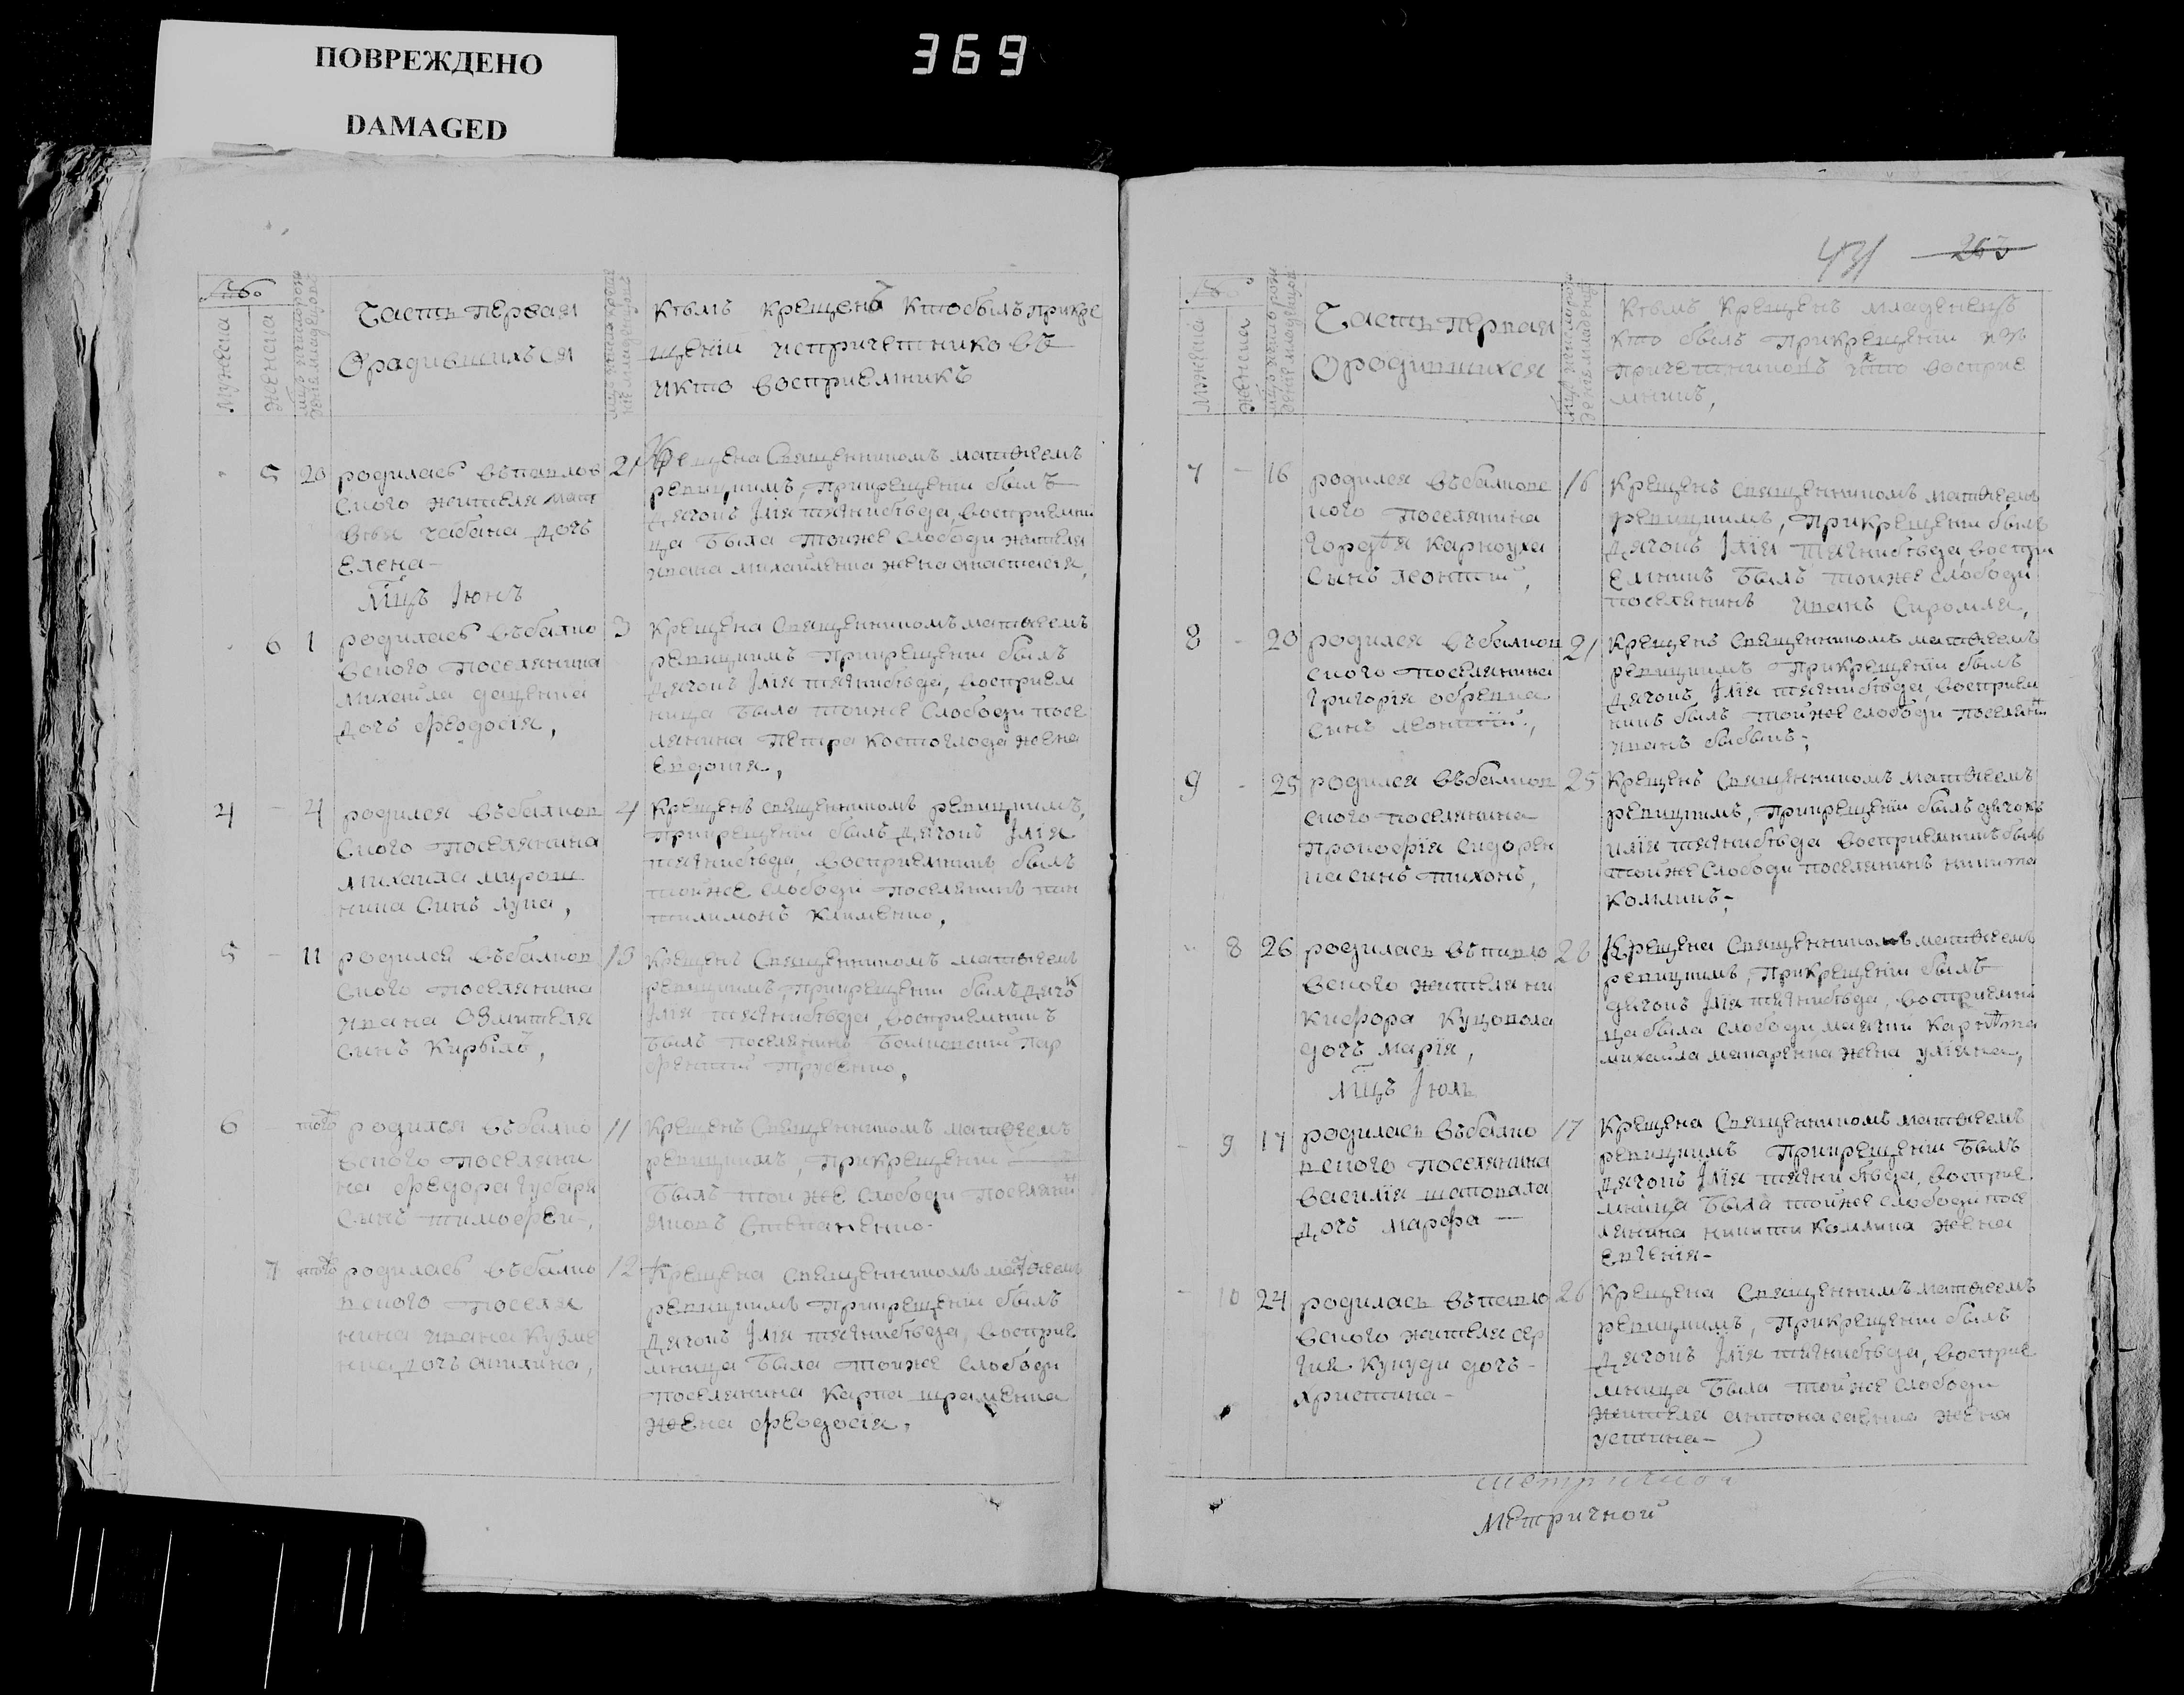 ПОВРЕЖДЕНО
DAMAGED
369
Часть первая
Орадившихъся
кѣмъ крещенъ кто былъ прикре
щеніи испричетниковъ
икто восприемникъ
мужеска
женска
5 20 родиласъ въпавлов
ского жителя мат
вѣя чабана дочъ
Елена-
21 Крещена Священникомъ матѳеемъ
ревицкимъ, Прикрещеніи былъ
Дячокъ Ілія тягнибѣда, восприемни
ца Была тойже Слободи жителя
ивана михайленка жена анастасія,
Мцъ Іюнъ
6 1 родиласъ въбалко
вского поселянина
Михайла даценка
дочъ феодосія,
3 Крещена Священникомъ матѳеемъ
ревицкимъ Прикрещеніи былъ
Дячокъ Ілія тягнибѣда, восприем
ница Была тойже Слободи посе
лянина петра костоглода жена
Евдокия,
4 - 4 родился въбалков
ского поселянина
михаила мирош
ника Синъ лука,
4 Крещенъ священникомъ ревицкимъ,
Прикрещеніи былъ Дячокъ Ілія
тягнибѣда, восприемникъ былъ
тойже слободи поселянинъ пан
тилимонъ клименко,
5 - 11 родился въбалков
ского поселянина
ивана
Синъ Кирылъ,
13 Крещенъ Священникомъ матѳеемъ
ревицкимъ, Прикрещеніи былъ дячокъ
Ілія тягнибѣда, восприемникъ
Былъ поселянинъ Балковский пар
фентий трусенко,
6 - тогожъ родился въбалко
вского поселяни
на федора губаря
Синъ тимофей-,
11 Крещенъ Священникомъ матѳеемъ
ревицкимъ, Прикрещеніи
Былъ той же слободи поселянин
яковъ степаненко-
7 тогожъ родиласъ въбалко
вского поселя
нина ивана кузме
нка дочъ акилина,
12 Крещена священникомъ матѳеемъ
ревицкимъ Прикрещеніи былъ
Дячокъ Ілія тягнибѣда, восприе
мница Была тойже слободи
поселянина карпа шраменка
жена феодосія,
431 265
Часть первая
Ородившихся
Кѣмъ крещенъ младенецъ
кто былъ прикрещеніи изъ
причетниковъ икто восприе
мникъ,
мужеска
женска
7 - 16 родился въбалковс
кого поселянина
Гордѣя карноуха
Сынъ леонтий,
16 Крещенъ священникомъ матѳеемъ
ревицкимъ, Прикрещеніи былъ
Дячокъ Ілія тягнибѣда воспри
емникъ Былъ тойже слободи
поселянинъ иванъ Сиромля,
8 - 20 родился въбалков
ского поселянина
Григорія
синъ леонтий,
21 Крещенъ священникомъ матѳеемъ
ревицкимъ Прикрещеніи былъ
Дячокъ Ілія тягнибѣда восприем
никъ былъ тойже слободи поселянинъ
иванъ
9 - 25 родился въбалков
ского поселянина
Прокофія сидорен
ка синъ тихонъ,
25 Крещенъ Священникомъ матѳеемъ
ревицкимъ, Прикрещеніи былъ дячокъ
илія тягнибѣда восприемникъ былъ
тойже слободи поселянинъ никита
8 26 родиласъ въпавло
вского жителя ни
кифора куцовола
дочъ марія,
28 Крещена Священникомъ матѳеемъ
ревицкимъ, Прикрещеніи былъ
дячокъ Ілія тягнибѣда, восприемни
ца была слободи маячки
михайла макаренка жена уліяна,
Мцъ Іюль
9 17 родиласъ въбалко
вского поселянина
василія шаповала
дочъ марфа -
17 Крещена Священникомъ матѳеемъ
ревицкимъ Прикрещеніи Былъ
Дячокъ Ілія тягнибѣда, восприе
мница Была тойже слободи посе
лянина никити жена
евгенія-
10 24 родиласъ въпавло
вского жителя сер
гия дочъ-
христина-
26 Крещена Священникимъ матѳеемъ
ревицкимъ, Прикрещеніи былъ
Дячокъ Ілія тягнибѣда, восприе
мница Была тойже слободи
жителя антона савенка жена
устина-
Метричной